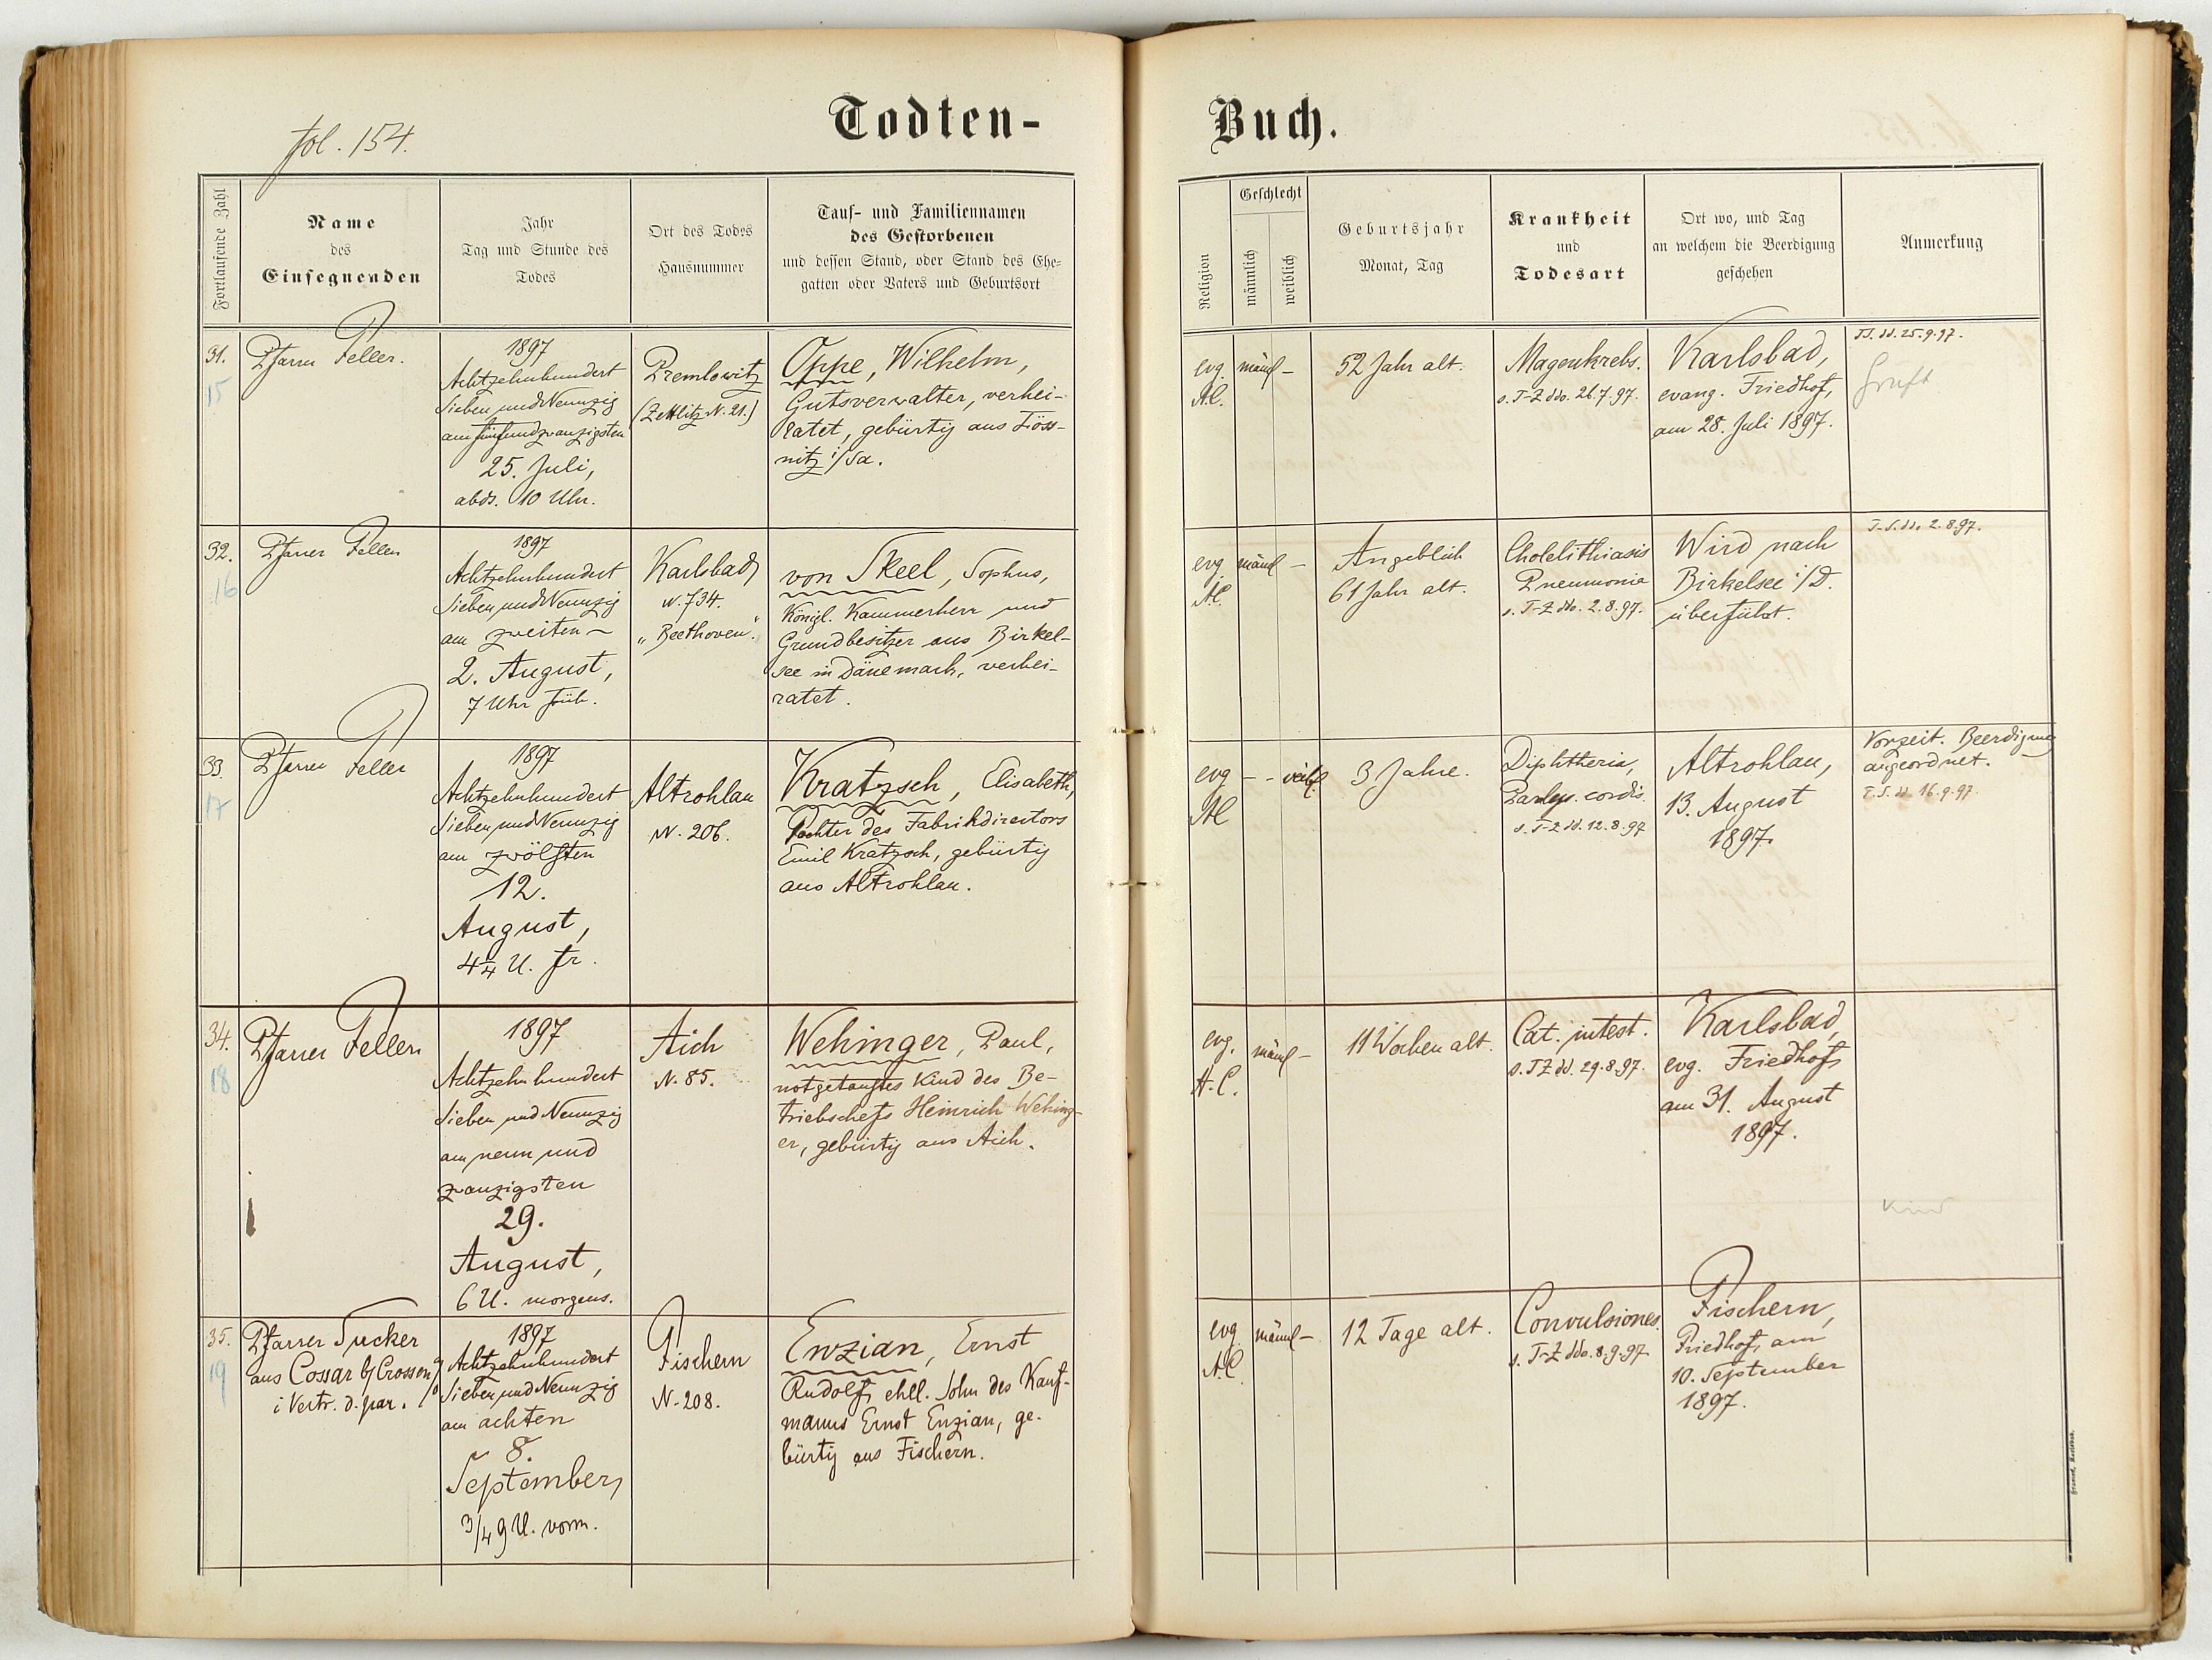 fol. 154.
Todten-
Buch.
Fortlaufende Zahl
Name
des
Einsegnenden
Jahr
Tag und Stunde des
Todes
Ort des Todes
Hausnummer
Tauf- und Familiennamen
des Gestorbenen
und dessen Stand, oder Stand des Ehe-
gatten oder Vaters und Geburtsort
Religion
Geschlecht
männlich
weiblich
Geburtsjahr
Monat, Tag
Krankheit
und
Todesart
Ort wo, und Tag
an welchem die Beerdigung
geschehen
Anmerkung
31.
15
Pfarrer Feller.
1897
Achtzehnhundert
Sieben und Neunzig
am fünfundzwanzigsten
25. Juli,
abds. 10 Uhr.
Premlowitz
(Zettlitz N. 21.)
Oppe, Wilhelm,
Gutsverwalter, verhei-
ratet, gebürtig aus Löss-
nitz i/Sa.
evg.
A.C.
männl -
52 Jahr alt.
Magenkrebs.
s. T-Z ddo. 26.7.97.
Karlsbad,
evang. Friedhof,
am 28. Juli 1897.
T.S. dd. 25.9.97.
Gruft
32.
16
Pfarrer Feller
1897
Achtzehnhundert
Sieben und Neunzig
am zweiten ~
2. August,
7 Uhr früh.
Karlsbad,
N. 734.
"Beethoven".
von Skeel, Sophus,
Königl. Kammerherr und
Grundbesitzer aus Birkel-
see in Dänemark, verhei-
ratet.
evg
A.C.
männl -
Angeblich
61 Jahr alt.
Cholelithiasis
Pneumonia
s. T-Z ddo. 2.8.97.
Wird nach
Birkelsee i/D.
überführt.
T-S. dd. 2.8.97.
33.
17
Pfarrer Feller
1897
Achtzehnhundert
Sieben und Neunzig
am zwölften
12.
August,
4¼ U. fr.
Altrohlau
N. 206.
Kratzsch, Elisabeth,
Tochter des Fabrikdirectors
Emil Kratzsch, gebürtig
aus Altrohlau.
evg
AC
- - weibl
3 Jahre.
Diphtheria,
Paralys. cordis.
s. T-Z dd. 12.8.97
Altrohlau,
13. August
1897.
Vorzeit. Beerdigung
angeordnet.
T.S. dd. 16.9.97.
34.
18
Pfarrer Feller
1897
Achtzehnhundert
Sieben und Neunzig
am neun und
zwanzigsten
29.
August,
6 U. morgens.
Aich
N. 85.
Wehinger, Paul,
notgetauftes Kind des Be-
triebschefs Heinrich Wehing-
er, gebürtig aus Aich.
evg.
A.C.
männl -
11 Wochen alt.
Cat. intest.
s. TZ dd. 29.8.97.
Karlsbad,
evg. Friedhof,
am 31. August
1897.
Kind
35.
19
Pfarrer Sucker
aus Cossar b/Crossen a/O
i Vertr. d. par.
1897
Achtzehnhundert
Sieben und Neunzig
am achten
8.
September,
3/4 9 U. vorm.
Fischern
N. 208.
Enzian, Ernst
Rudolf, ehel. Sohn des Kauf-
manns Ernst Enzian, ge-
bürtig aus Fischern.
evg
A.C.
männl -
12 Tage alt.
Convulsiones.
s. T-Z ddo. 8.9.97.
Fischern,
Friedhof, am
10. September
1897.